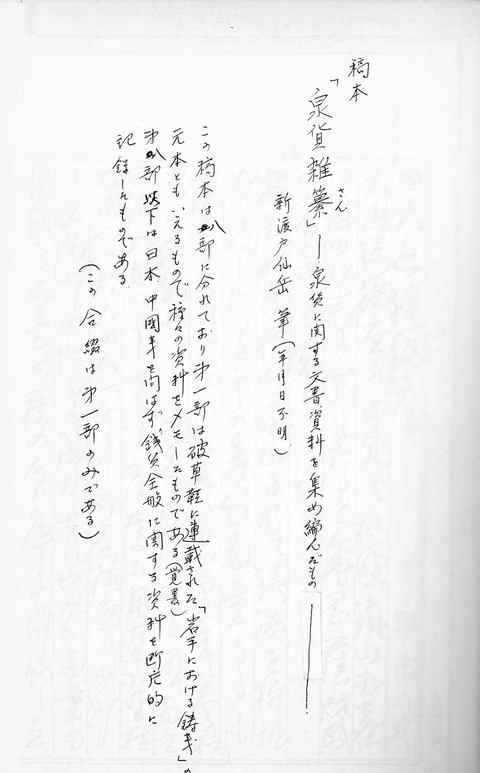 稿本
「泉貨雑纂」―泉貨に関する文書、資料を集め編んだもの―
さん
新渡戸仙岳 筆(年月日不明)
この稿本は八部に分れており第一部は破草鞋に連載された「岩手における鋳銭」の
元本ともいえるもので種々の資料をメモしたものである(覚書)
第 部以下は日本、中国銭を問はず、銭貨全般に関する資料を断片的に
記録したものである。
(この合綴は第一部のみである)